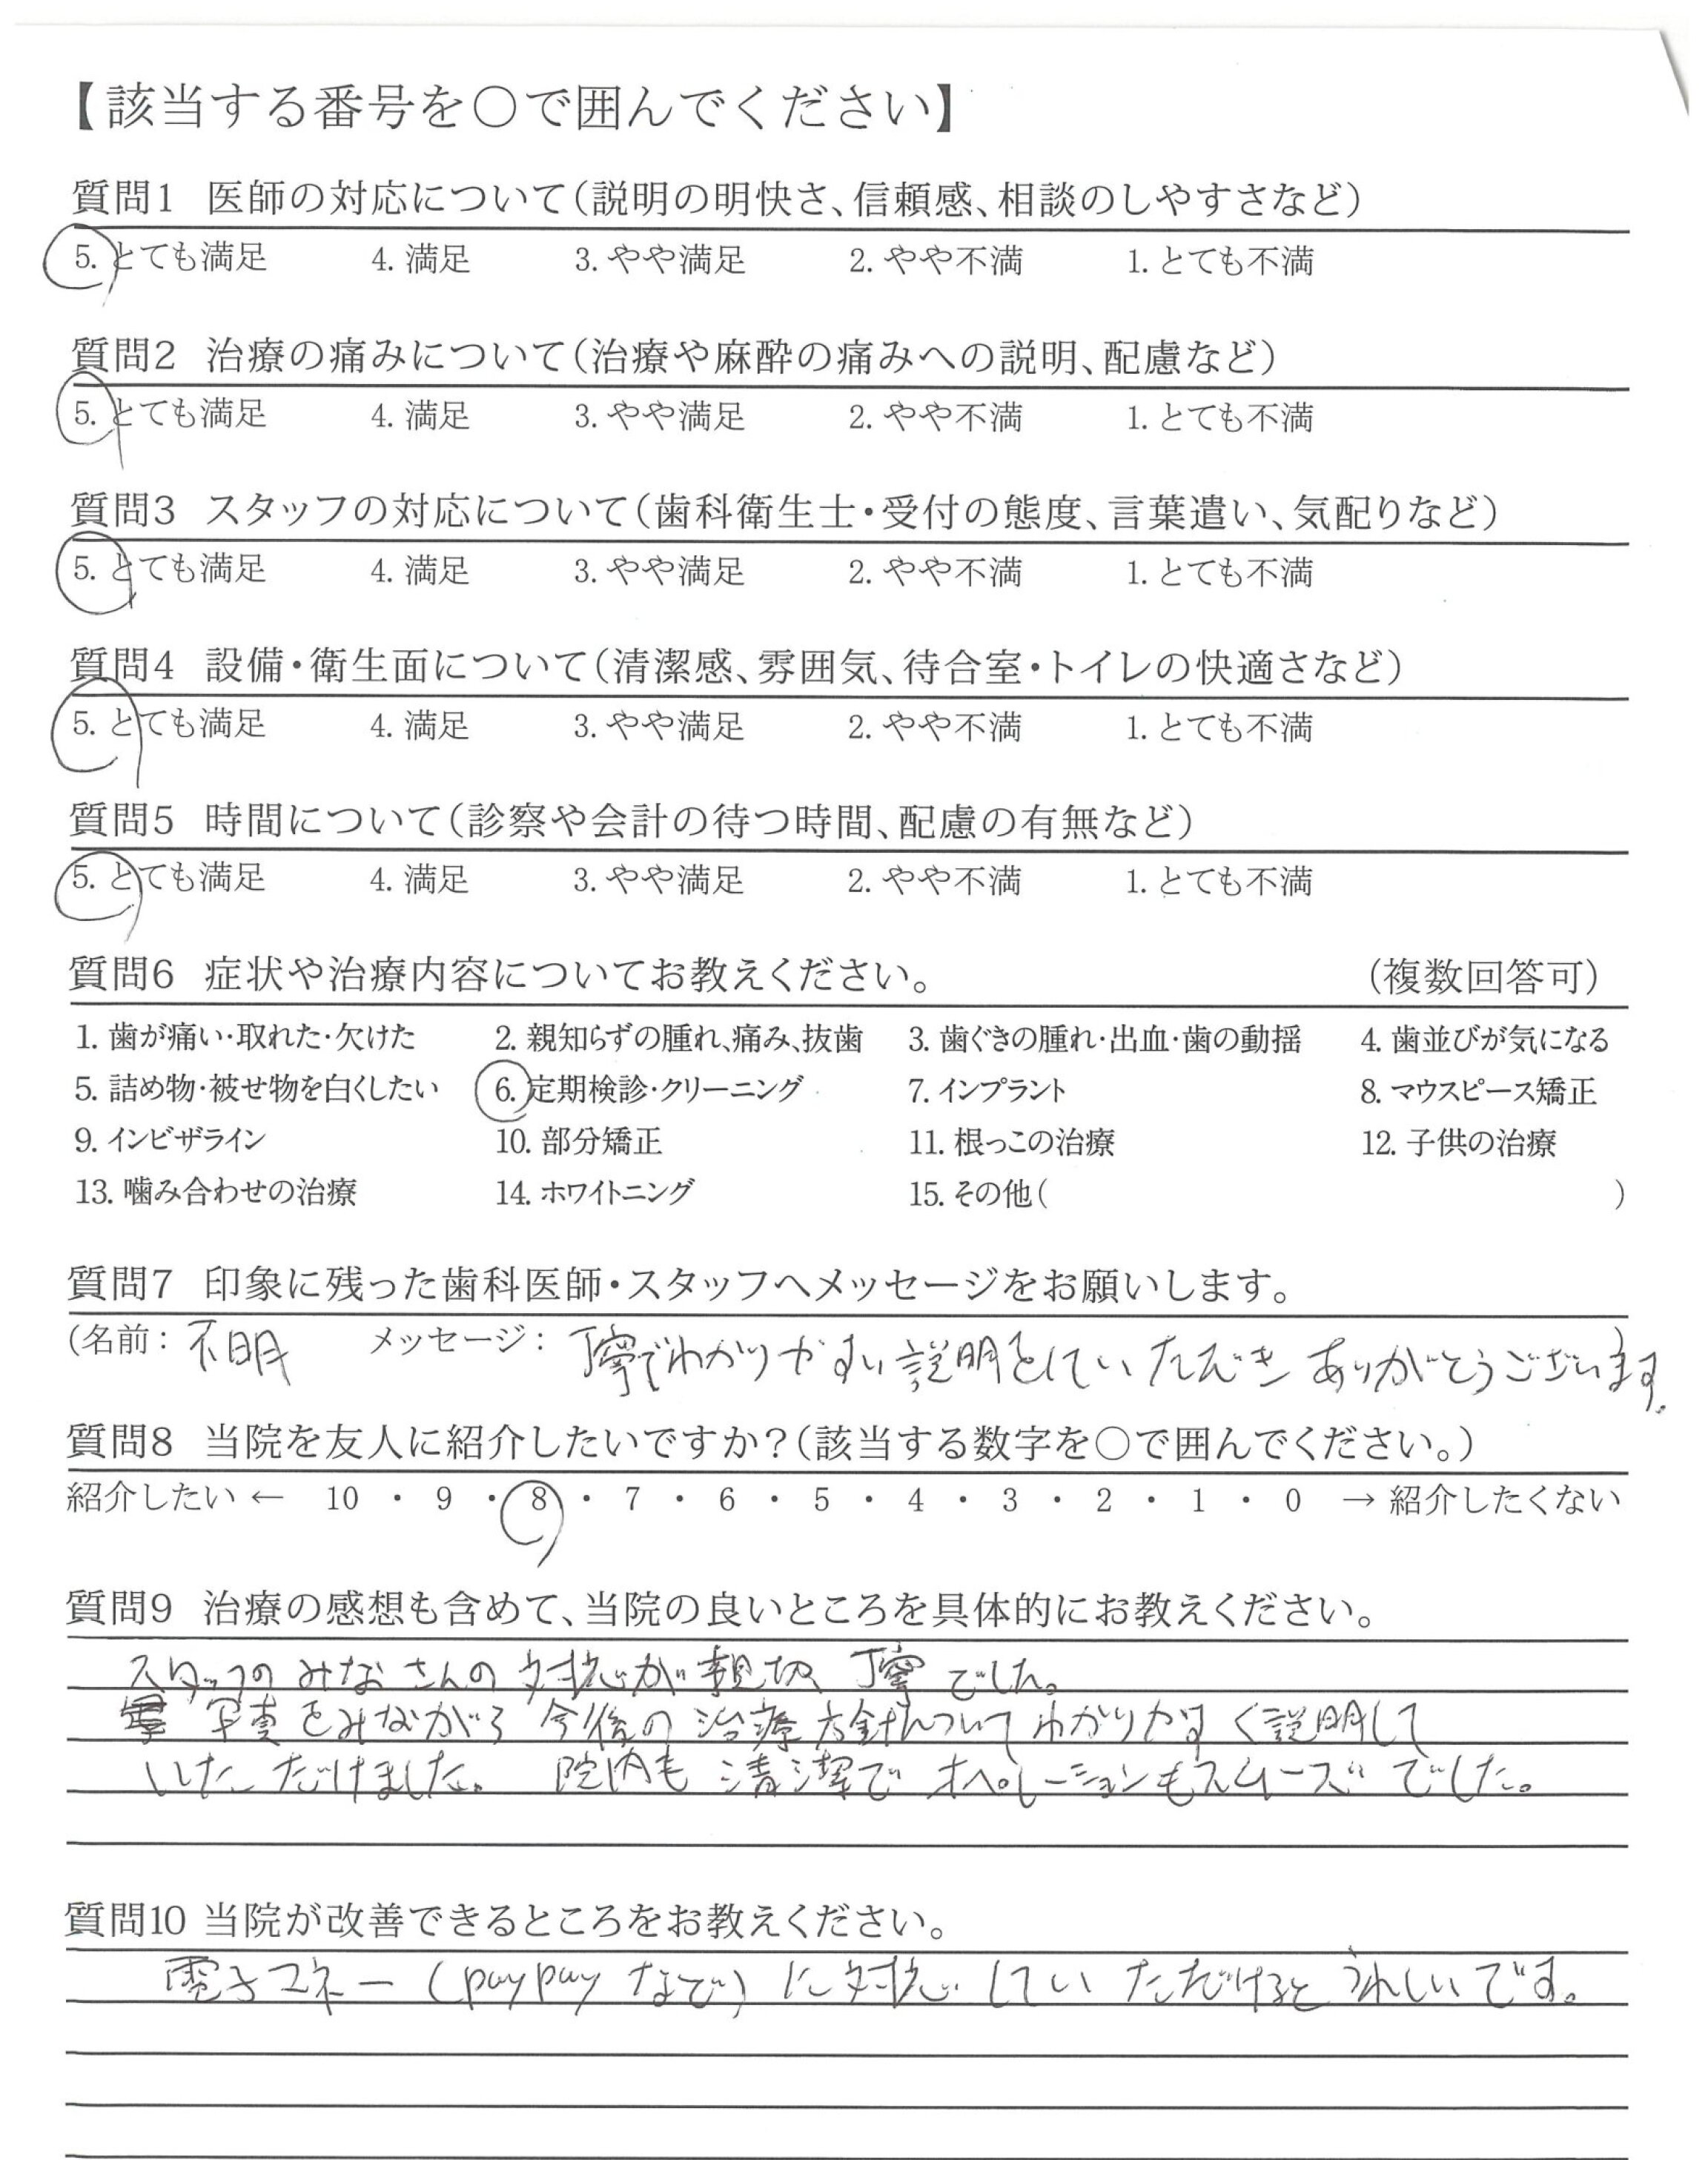 【該当する番号を○で囲んでください】
質問1 医師の対応について(説明の明快さ、信頼感、相談のしやすさなど)
5. とても満足 4. 満足 3. やや満足 2. やや不満 1. とても不満
質問2 治療の痛みについて(治療や麻酔の痛みへの説明、配慮など)
5. とても満足 4. 満足 3. やや満足 2. やや不満 1. とても不満
質問3 スタッフの対応について(歯科衛生士・受付の態度、言葉遣い、気配りなど)
5. とても満足 4. 満足 3. やや満足 2. やや不満 1. とても不満
質問4 設備・衛生面について(清潔感、雰囲気、待合室・トイレの快適さなど)
5. とても満足 4. 満足 3. やや満足 2. やや不満 1. とても不満
質問5 時間について(診察や会計の待つ時間、配慮の有無など)
5. とても満足 4. 満足 3. やや満足 2. やや不満 1. とても不満
質問6 症状や治療内容についてお教えください。 (複数回答可)
1. 歯が痛い・取れた・欠けた 2. 親知らずの腫れ、痛み、抜歯 3. 歯ぐきの腫れ・出血・歯の動揺 4. 歯並びが気になる
5. 詰め物・被せ物を白くしたい 6. 定期検診・クリーニング 7. インプラント 8. マウスピース矯正
9. インビザライン 10. 部分矯正 11. 根っこの治療 12. 子供の治療
13. 噛み合わせの治療 14. ホワイトニング 15. その他( )
質問7 印象に残った歯科医師・スタッフへメッセージをお願いします。
(名前: 不明 メッセージ: 丁寧でわかりやすい説明をしていただきありがとうございます。)
質問8 当院を友人に紹介したいですか?(該当する数字を○で囲んでください。)
紹介したい ← 10 ・ 9 ・ 8 ・ 7 ・ 6 ・ 5 ・ 4 ・ 3 ・ 2 ・ 1 ・ 0 → 紹介したくない
質問9 治療の感想も含めて、当院の良いところを具体的にお教えください。
スタッフのみなさんの対応が親切丁寧でした。
写真をみながら今後の治療方針についてわかりやすく説明して
いただけました。院内も清潔でオペレーションもスムーズでした。
質問10 当院が改善できるところをお教えください。
電子マネー(paypayなど)に対応していただけるとうれしいです。